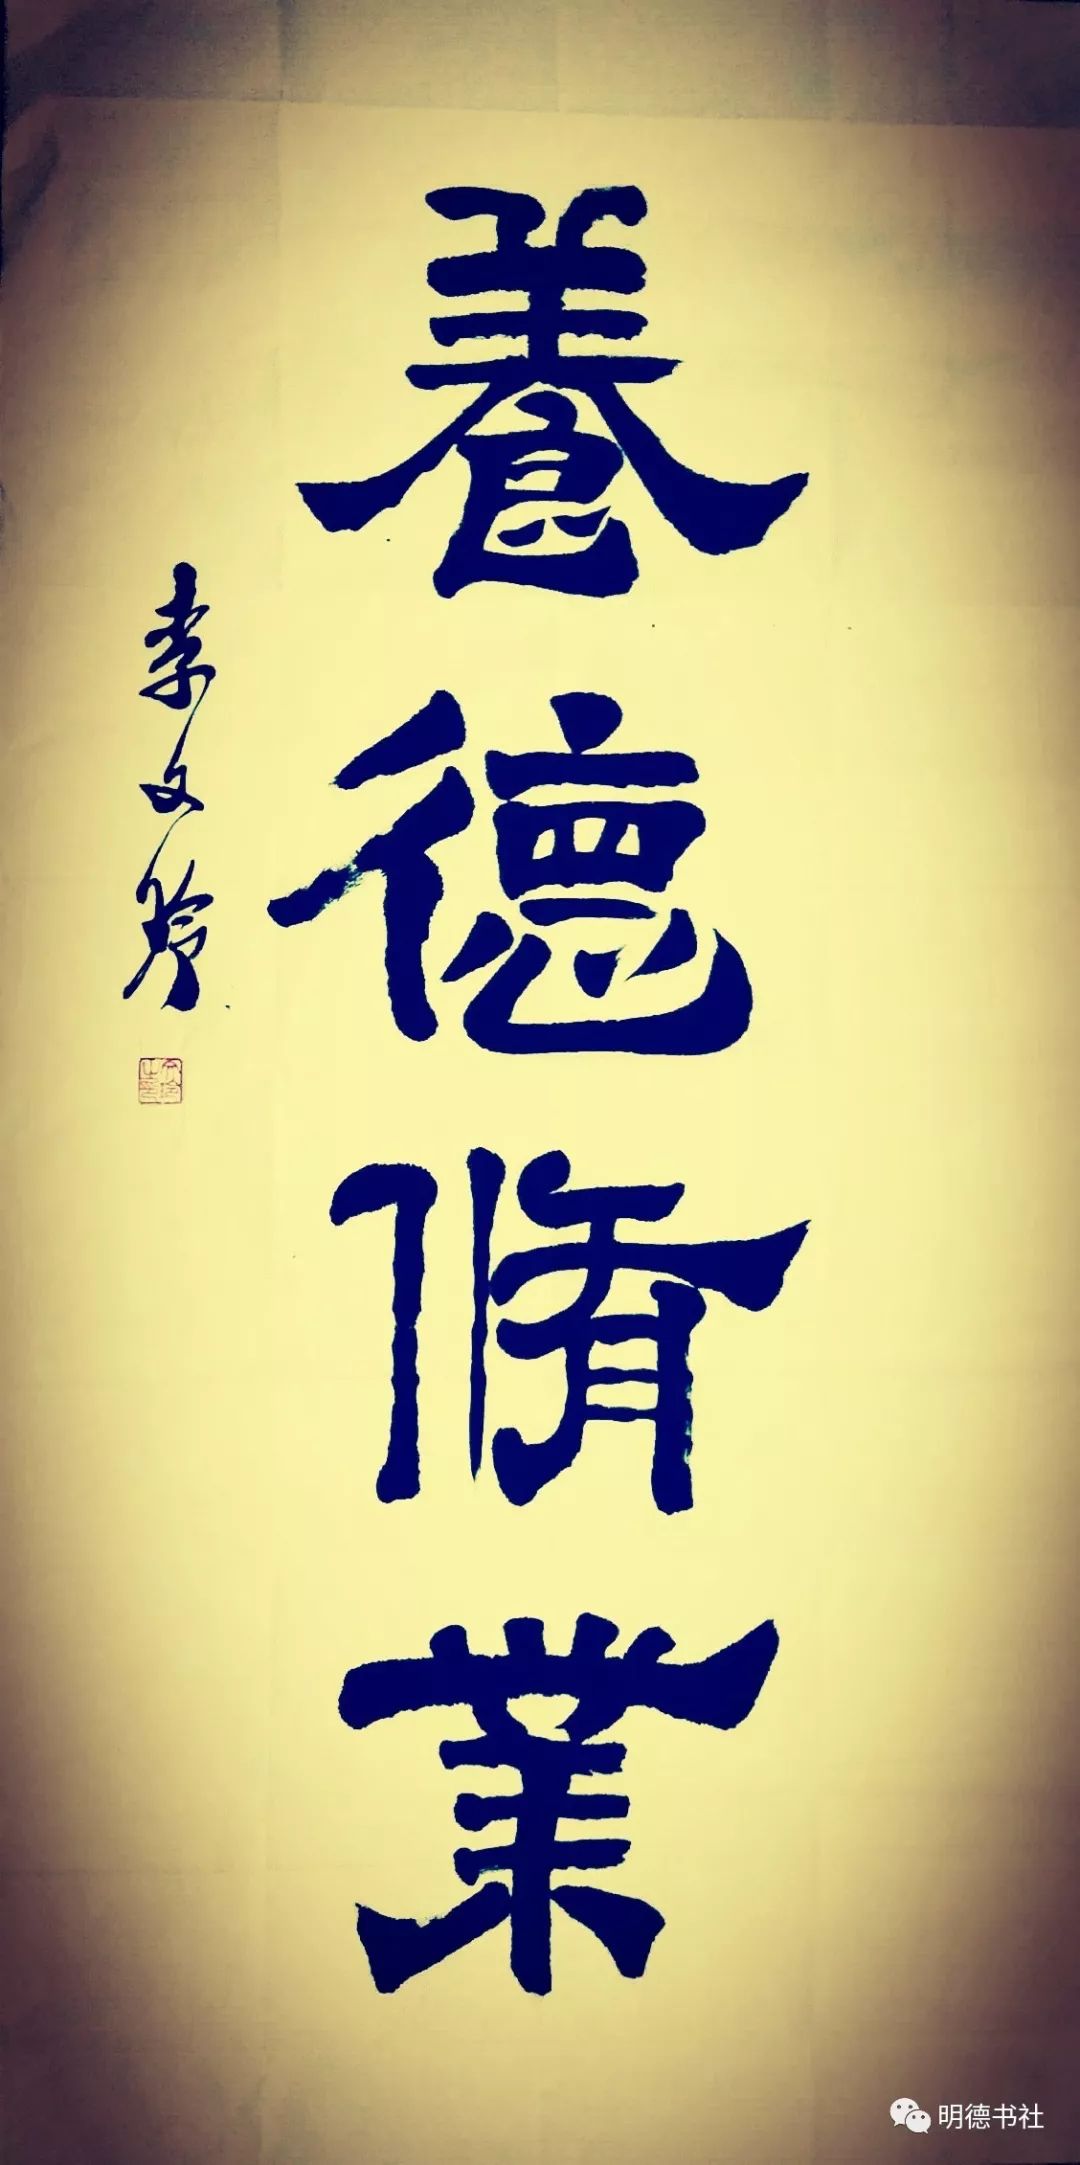 養德脩業
李文玲
明德书社